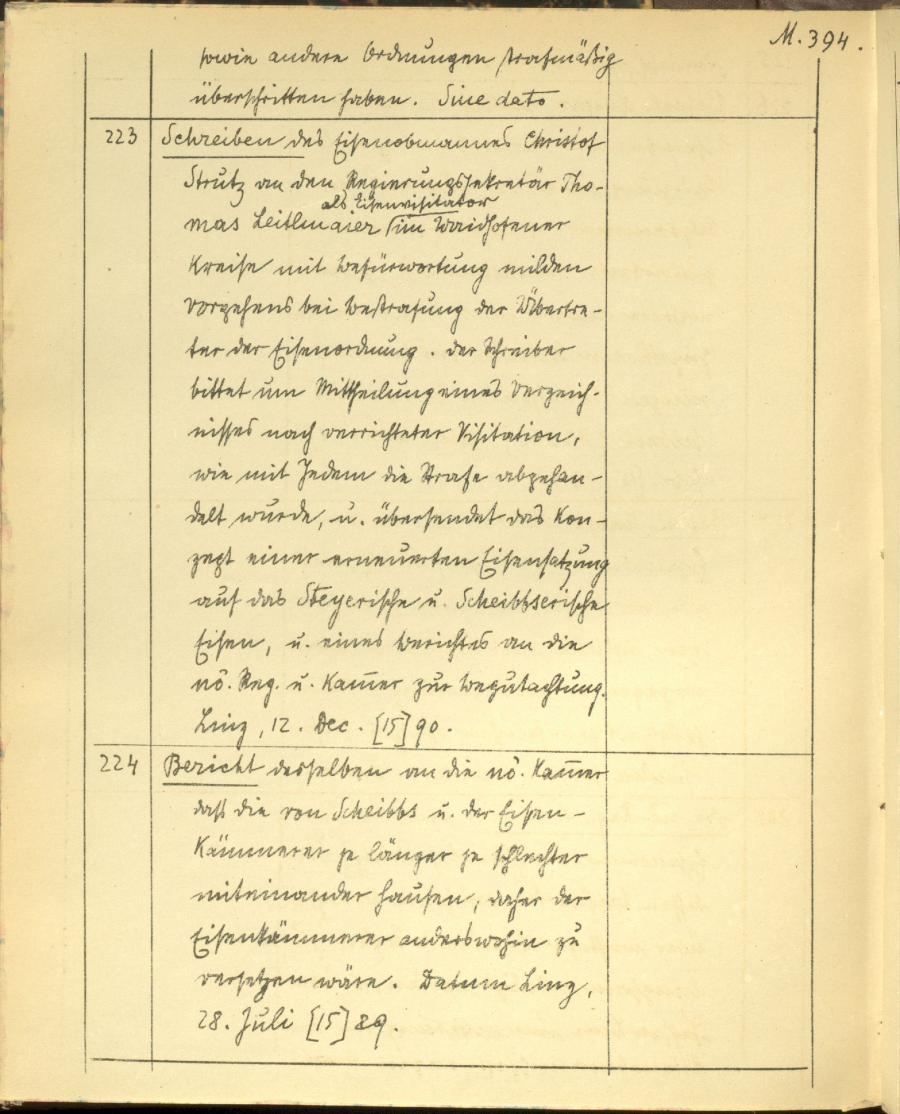 M. 394.
sowie andere Ordnungen strafmäßig
überschritten haben. Sine dato.
223 Schreiben des Eisenobmannes Christof
Strutz an den Regierungssekretär Tho-
als Eisenvisitator
mas Leitlmaier im Waidhofener
Kreise mit Befürwortung milden
Vorgehens bei Bestrafung der Übertre-
ter der Eisenordnung. Der Schreiber
bittet um Mittheilung eines Verzeich-
nisses nach verrichteter Visitation,
wie mit Jedem die Strafe abgehan-
delt wurde, u. übersendet das Kon-
zept einer erneuerten Eisensatzung
auf das Steyerische u. Scheibbserische
Eisen, u. eines Berichtes an die
nö. Reg. u. Kam̅er zur Begutachtung.
Linz, 12. Dec. [15]90.
224 Bericht desselben an die nö. Kam̅er
daß die von Scheibbs u. der Eisen-
Kämmerer je länger je schlechter
miteinander hausen, daher der
Eisenkämmerer anderswohin zu
versetzen wäre. Datum Linz,
28. Juli [15]89.